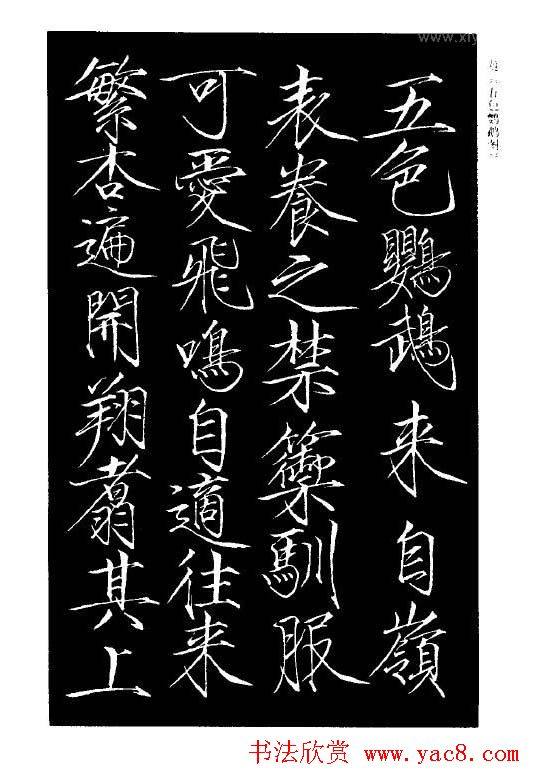 五色鸚鵡来自嶺
表養之禁籞馴服
可愛飛鳴自適往来
繁杏遍開翔翥其上
五色鹦鹉图
书法欣赏 www.yac8.com